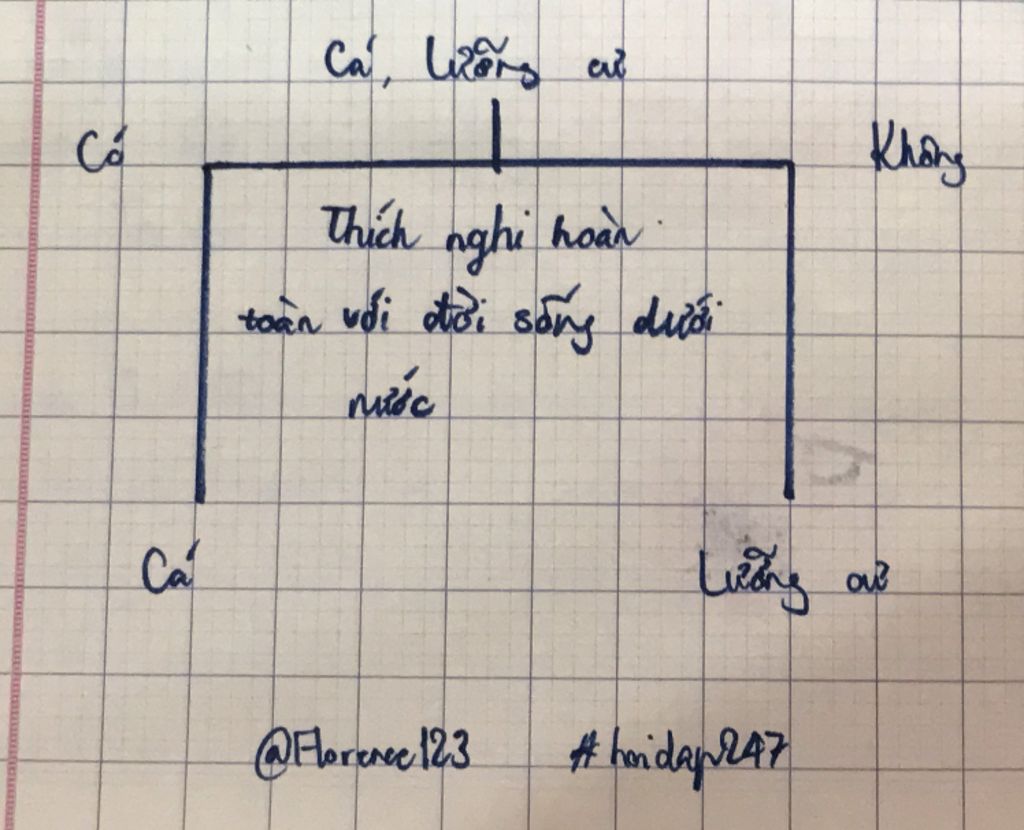 Cá, Lưỡng cư
Có
Không
Thích nghi hoàn
toàn với đời sống dưới
nước
Cá
Lưỡng cư
@Florence123 #hoidap247